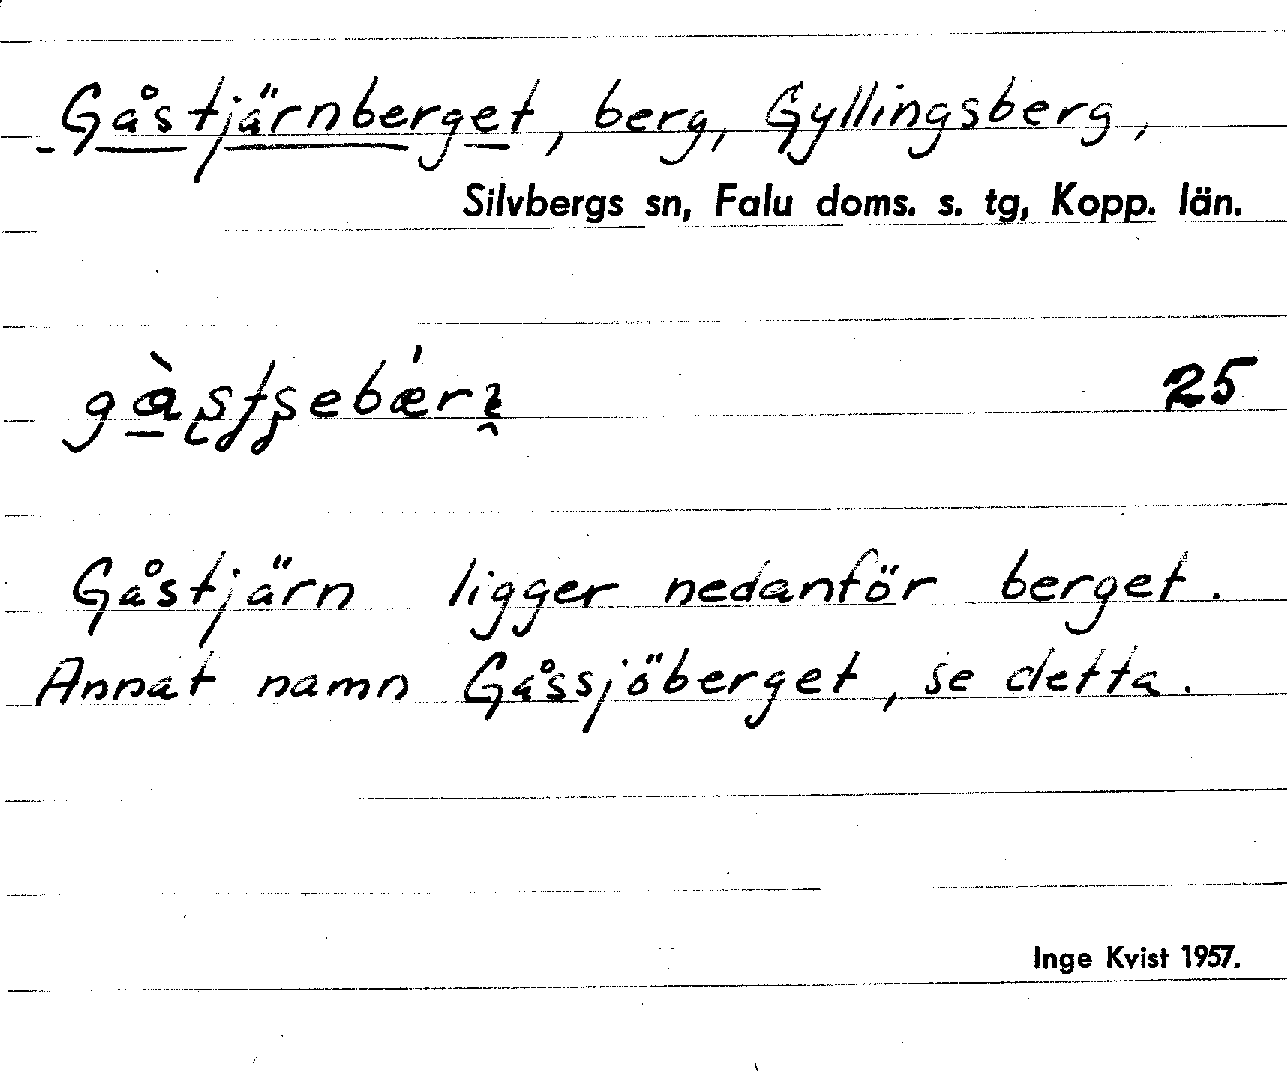 Gåstjärnberget, berg, Gyllingsberg,
Silvbergs sn, Falu doms. s. tg, Kopp. län.
25
Gåstjärn ligger nedanför berget.
Annat namn Gåssjöberget, se detta.
Inge Kvist 1957.